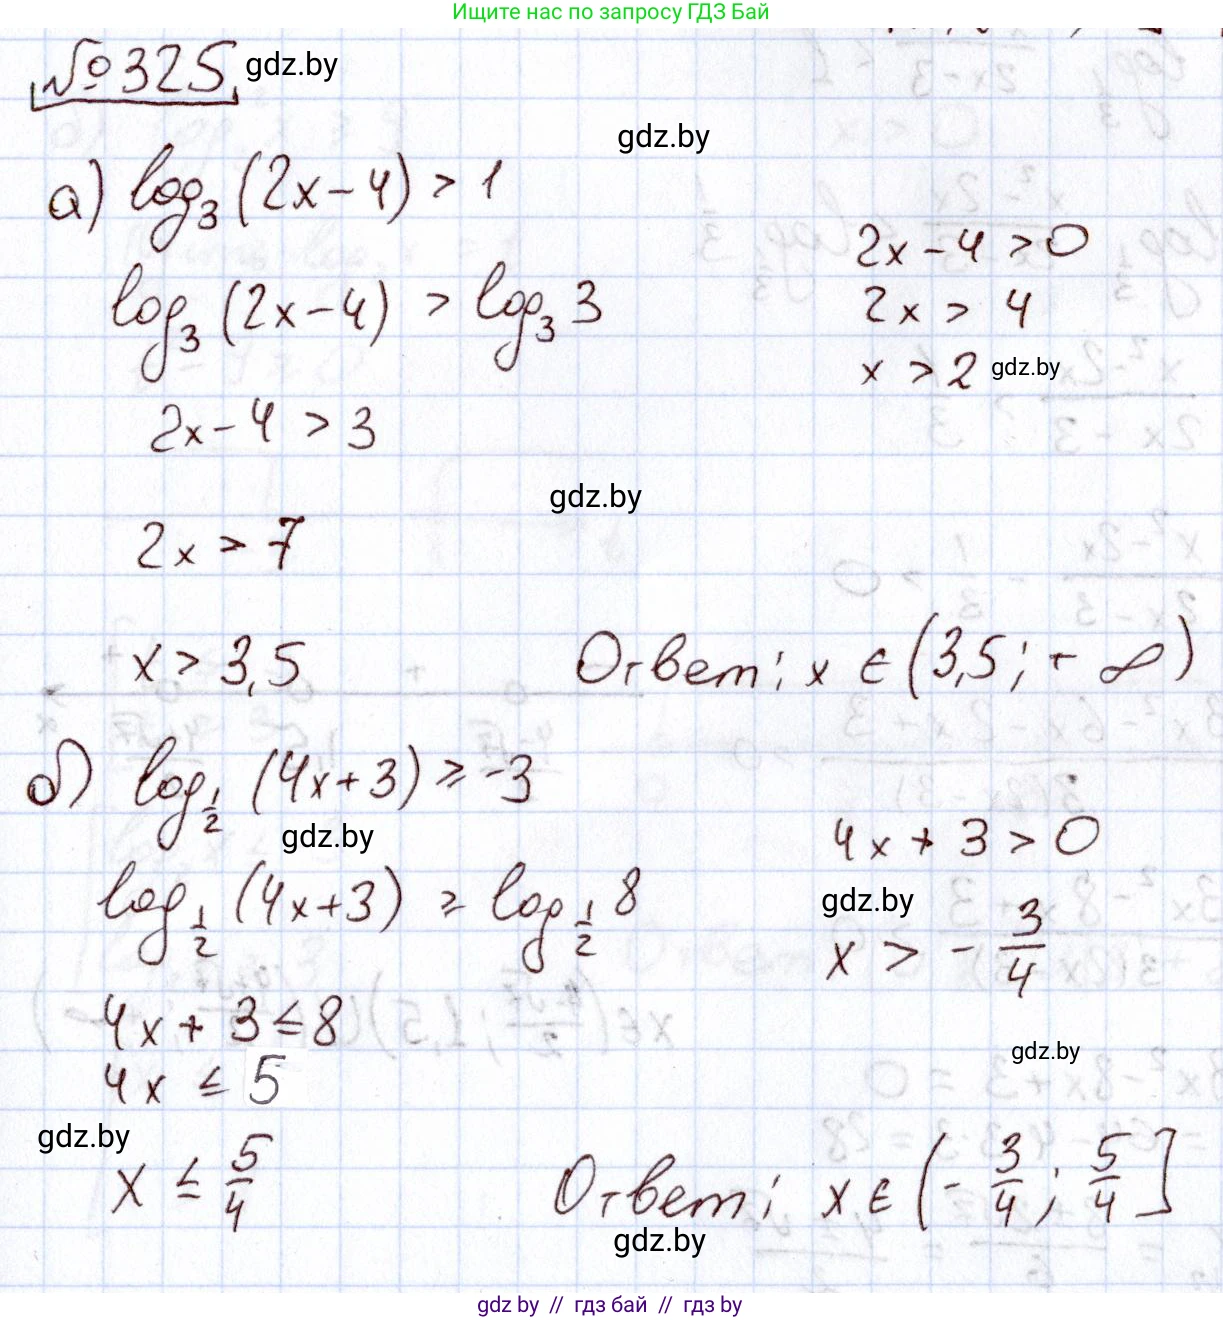 Ищите нас по запросу ГДЗ Бай
№325 gdz.by
gdz.by
а) log₃ (2x-4) > 1
2x-4 > 0
log₃ (2x-4) > log₃ 3
2x > 4
x > 2 gdz.by
2x-4 > 3
gdz.by
2x > 7
x > 3,5
Ответ: x ∈ (3,5; +∞)
б) log_{1/2} (4x+3) ≥ -3
gdz.by
4x + 3 > 0
log_{1/2} (4x+3) ≥ log_{1/2} 8
gdz.by
x > - 3/4
4x + 3 ≤ 8
gdz.by
4x ≤ 5
gdz.by
x ≤ 5/4
Ответ: x ∈ (- 3/4; 5/4]
gdz.by
gdz by // гдз бай // gdz by